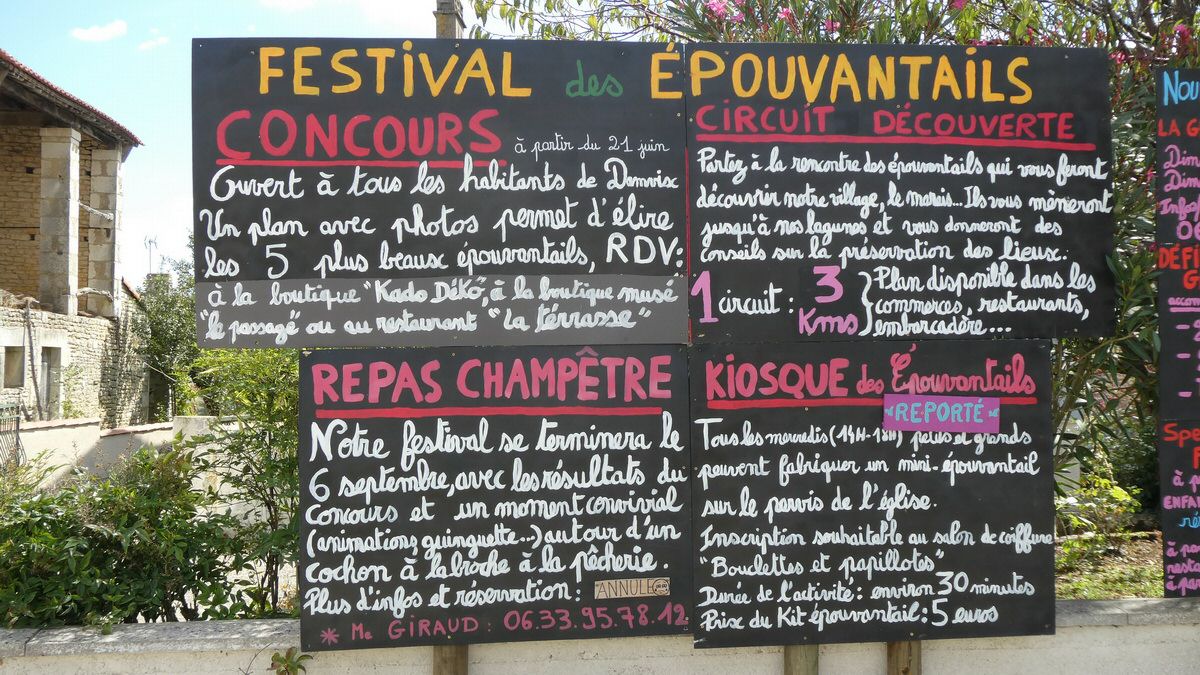 FESTIVAL des ÉPOUVANTAILS
CONCOURS à partir du 21 juin
Ouvert à tous les habitants de Damvix
Un plan avec photos permet d'élire
les 5 plus beaux épouvantails, RDV:
à la boutique "Kado Déko", à la boutique musé
"le passagé" ou au restaurant "La térrasse"
CIRCUIT DÉCOUVERTE
Partez à la rencontre des épouvantails qui vous feront
découvrir notre village, le marais... Ils vous mèneront
jusqu'à nos lagunes et vous donneront des
conseils sur la préservation des lieux.
1 circuit : 3 Kms
Plan disponible dans les
commerces, restaurants,
embarcadère....
REPAS CHAMPÊTRE
Notre festival se terminera le
6 septembre, avec les résultats du
Concours et un moment convivial
(animations, guinguette...) autour d'un
cochon à la broche à la pêcherie.
Plus d'infos et réservation: ANNULÉ
* Me GIRAUD : 06.33.95.78.12
KIOSQUE des Épouvantails
"REPORTÉ"
Tous les mercredis (14H-18H) petits et grands
peuvent fabriquer un mini-épouvantail
sur le parvis de l'église.
Inscription souhaitable au salon de coiffure
"Bouclettes et papillotes"
Durée de l'activité: environ 30 minutes
Prix du Kit épouvantail: 5 euros
NOU
LA G
Dim
Dim
Info
06
DÉFI
G
accom
Spe
F
à p
ENFAN
ré
à pa
resta
à pa